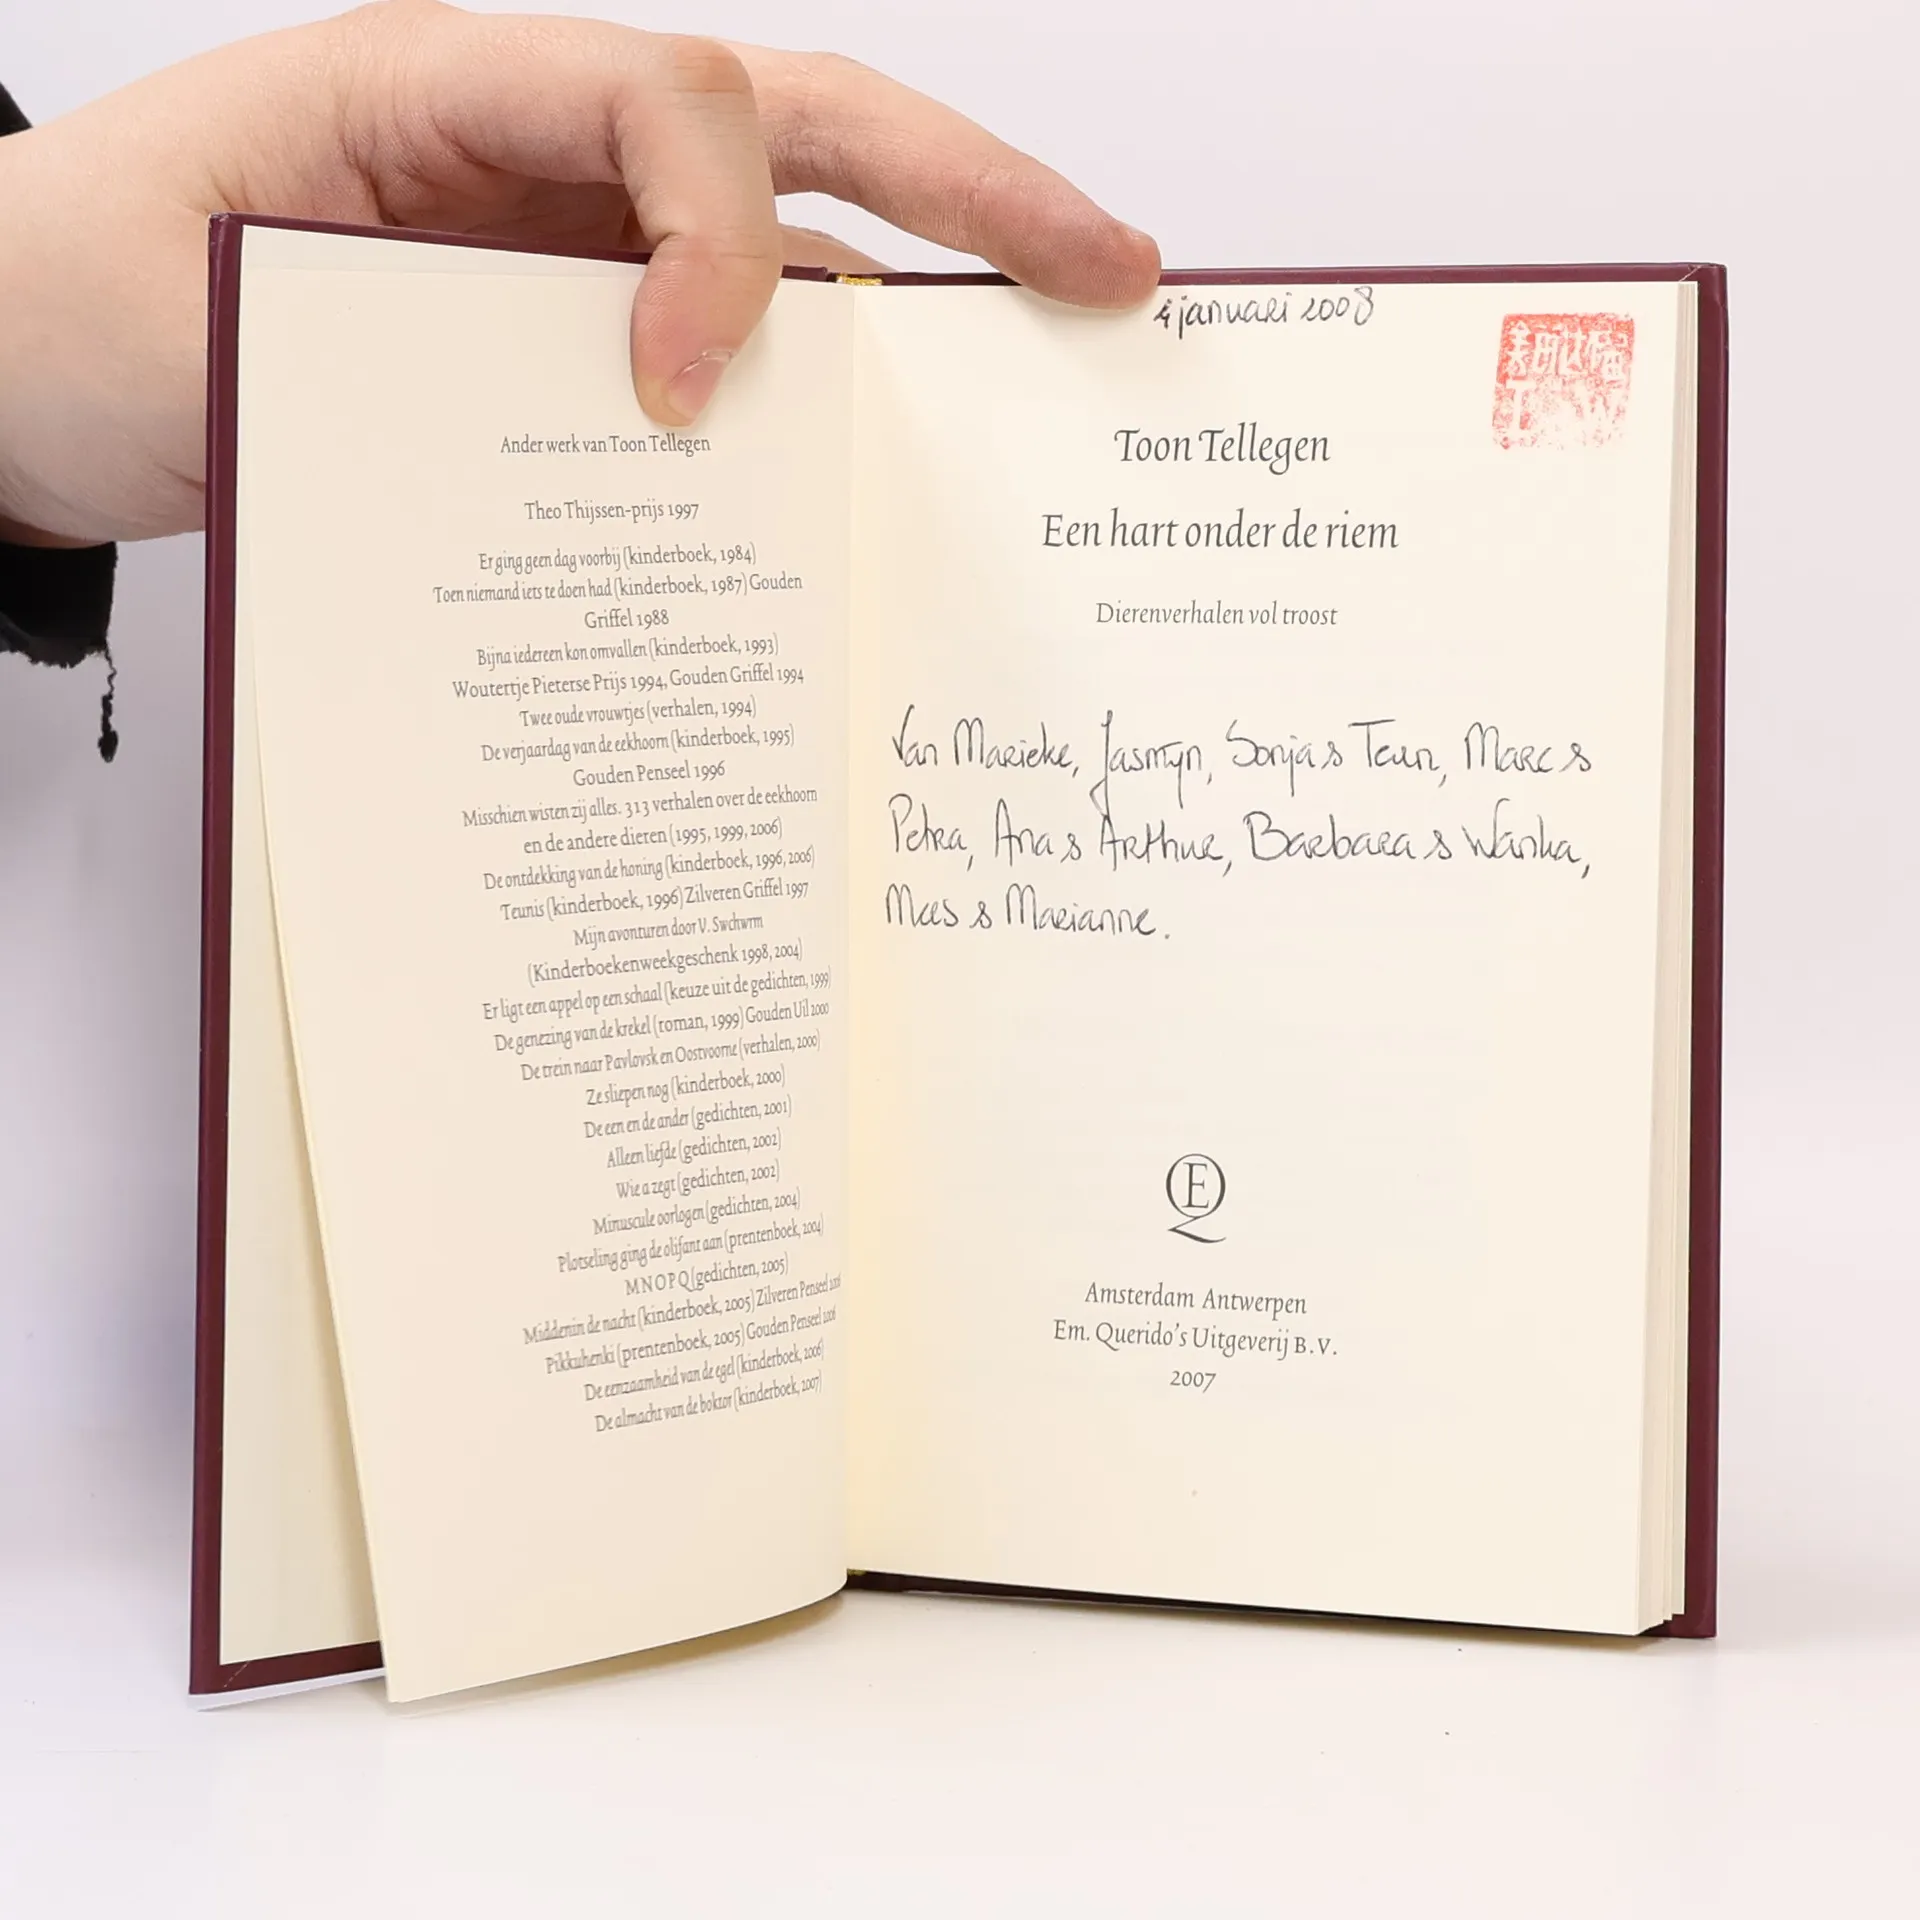 Ander werk van Toon Tellegen
Theo Thijssen-prijs 1997
Er ging geen dag voorbij (kinderboek, 1984)
Toen niemand iets te doen had (kinderboek, 1987) Gouden
Griffel 1988
Bijna iedereen kon omvallen (kinderboek, 1993)
Woutertje Pieterse Prijs 1994, Gouden Griffel 1994
Twee oude vrouwtjes (verhalen, 1994)
De verjaardag van de eekhoorn (kinderboek, 1995)
Gouden Penseel 1996
Misschien wisten zij alles. 313 verhalen over de eekhoorn
en de andere dieren (1995, 1999, 2006)
De ontdekking van de honing (kinderboek, 1996, 2006)
Teunis (kinderboek, 1996) Zilveren Griffel 1997
Mijn avonturen door V. Swchwrm
(Kinderboekenweekgeschenk 1998, 2004)
Er ligt een appel op een schaal (keuze uit de gedichten, 1999)
De genezing van de krekel (roman, 1999) Gouden Uil 2000
De trein naar Pavlovsk en Oostvoorne (verhalen, 2000)
Ze sliepen nog (kinderboek, 2000)
De een en de ander (gedichten, 2001)
Alleen liefde (gedichten, 2002)
Wie a zegt (gedichten, 2002)
Minuscule oorlogen (gedichten, 2004)
Plotseling ging de olifant aan (prentenboek, 2004)
M N O P Q (gedichten, 2005)
Midden in de nacht (kinderboek, 2005) Zilveren Penseel 2006
Pikkuhenki (prentenboek, 2005) Gouden Penseel 2006
De eenzaamheid van de egel (kinderboek, 2006)
De almacht van de boktor (kinderboek, 2007)
4 januari 2008
Toon Tellegen
Een hart onder de riem
Dierenverhalen vol troost
Van Marieke, Jasmyn, Sonja & Teun, Marc &
Petra, Ana & Arthur, Barbara & Wanka,
Mees & Marianne.
EQ
Amsterdam Antwerpen
Em. Querido's Uitgeverij B.V.
2007